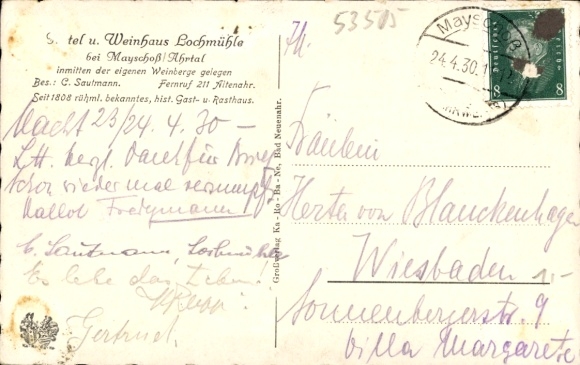 53515
Hotel u. Weinhaus Lochmühle
bei Mayschoß/Ahrtal
inmitten der eigenen Weinberge gelegen
Bes.: C. Sautmann. Fernruf 211 Altenahr.
Seit 1808 rühml. bekanntes, hist. Gast- u. Rasthaus.
Nacht 23/24. 4. 30 –
herzl. Dank für
schon wieder mal
C. Sautmann, Lochmühle
Es lebe das Leben!
Gertrud
Großverlag Ka-Ro-Ba-Ne, Bad Neuenahr.
Mayschoß
24.4.30.
Deutsches Reich
8 8
Fräulein
Herta von Blanckenhagen
Wiesbaden
Sonnenbergerstr. 9
Villa Margarete